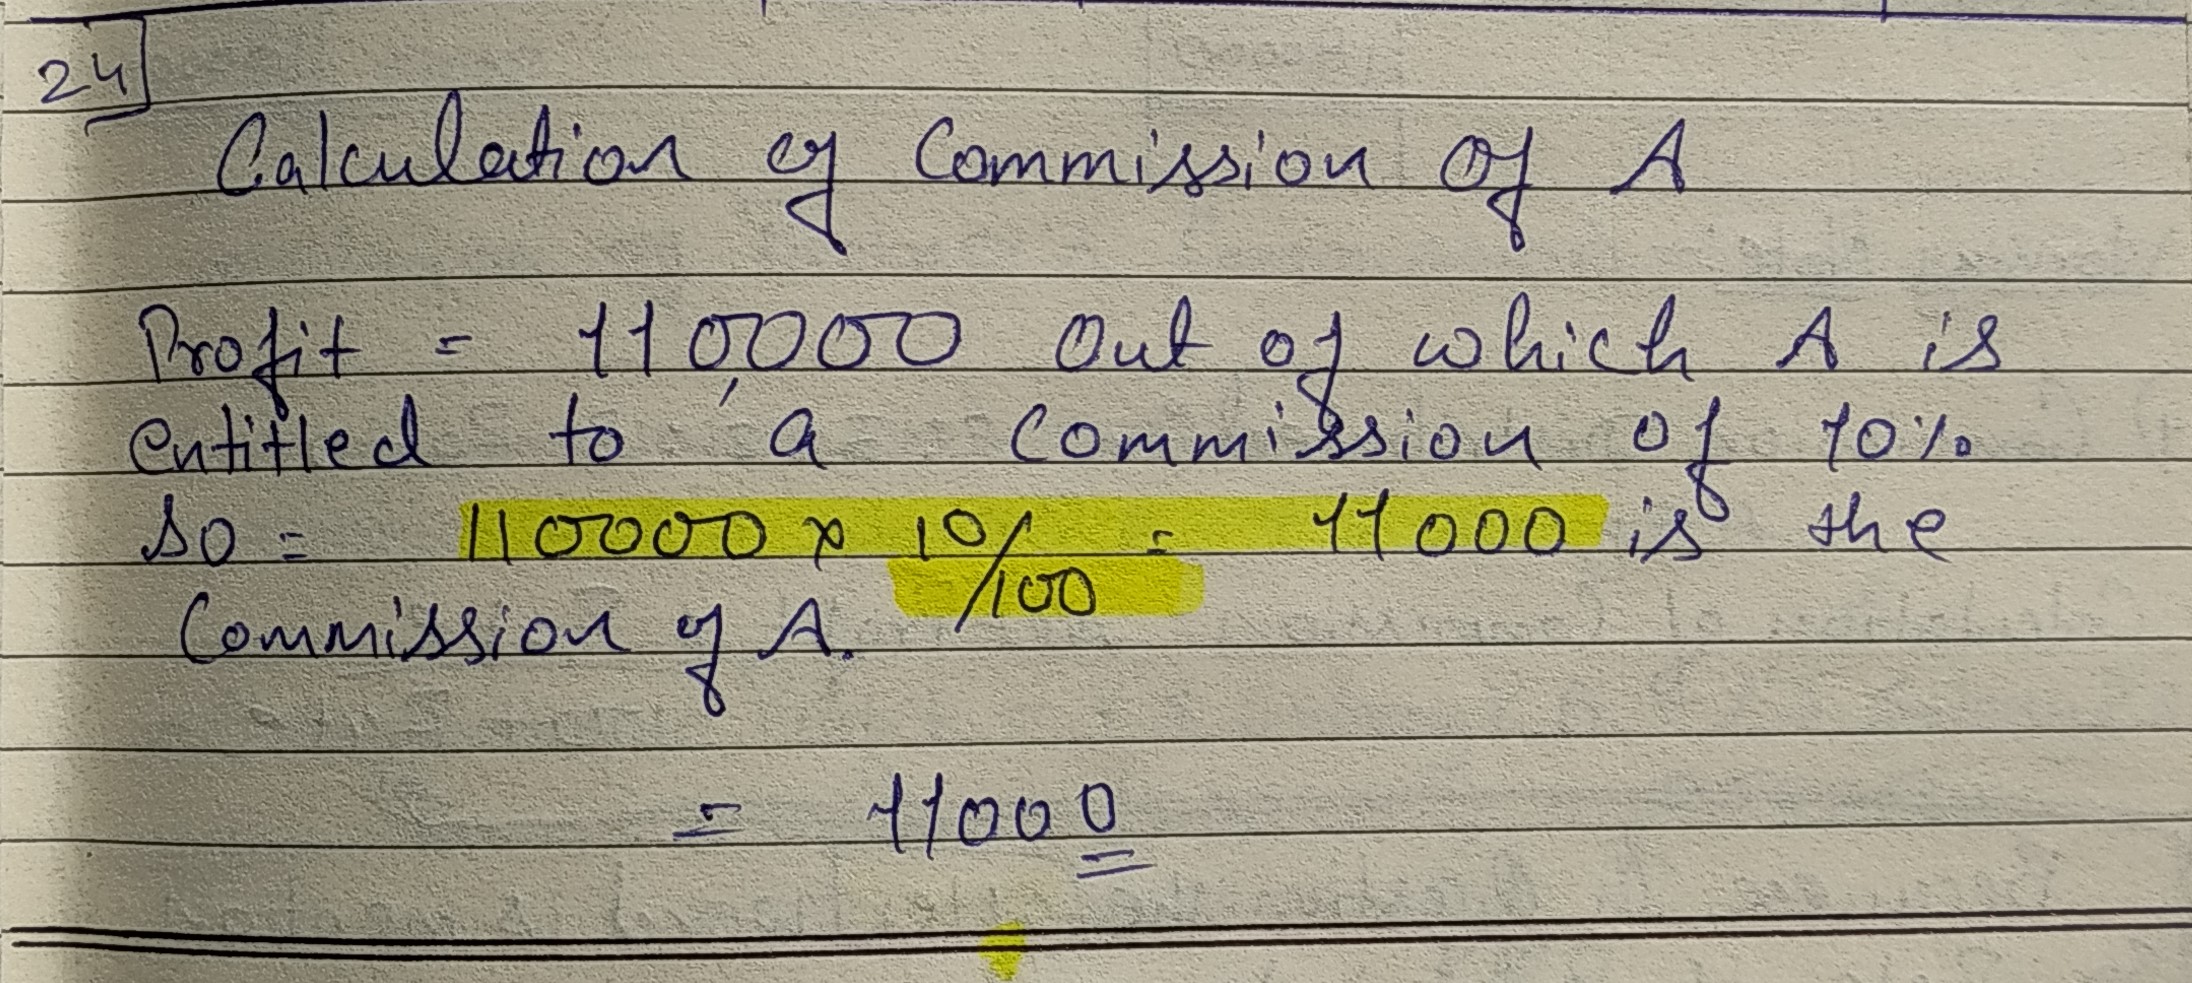 24
Calculation of Commission of A
Profit = 110,000 Out of which A is
entitled to a Commission of 10%
So = 110000 x 10/100 = 11000 is the
Commission of A.
= 11000